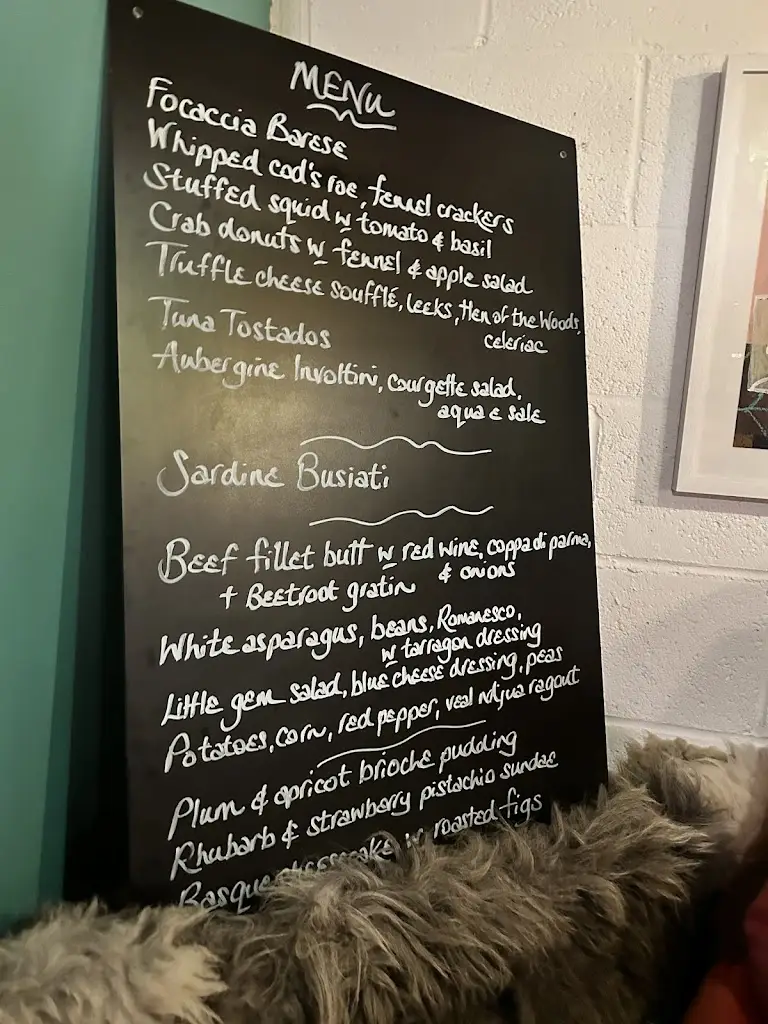 MENU
Focaccia Barese
Whipped cod's roe, fennel crackers
Stuffed squid w tomato & basil
Crab donuts w fennel & apple salad
Truffle cheese soufflé, leeks, Hen of the Woods,
celeriac
Tuna Tostados
Aubergine Involtini, courgette salad,
aqua e sale
Sardine Busiati
Beef fillet butt w red wine, coppa di parma,
& onions
+ Beetroot gratin
White asparagus, beans, Romanesco,
w tarragon dressing
Little gem salad, blue cheese dressing, peas
Potatoes, corn, red pepper, veal ndjua ragout
Plum & apricot brioche pudding
Rhubarb & strawberry pistachio sundae
Basque cheesecake w roasted figs